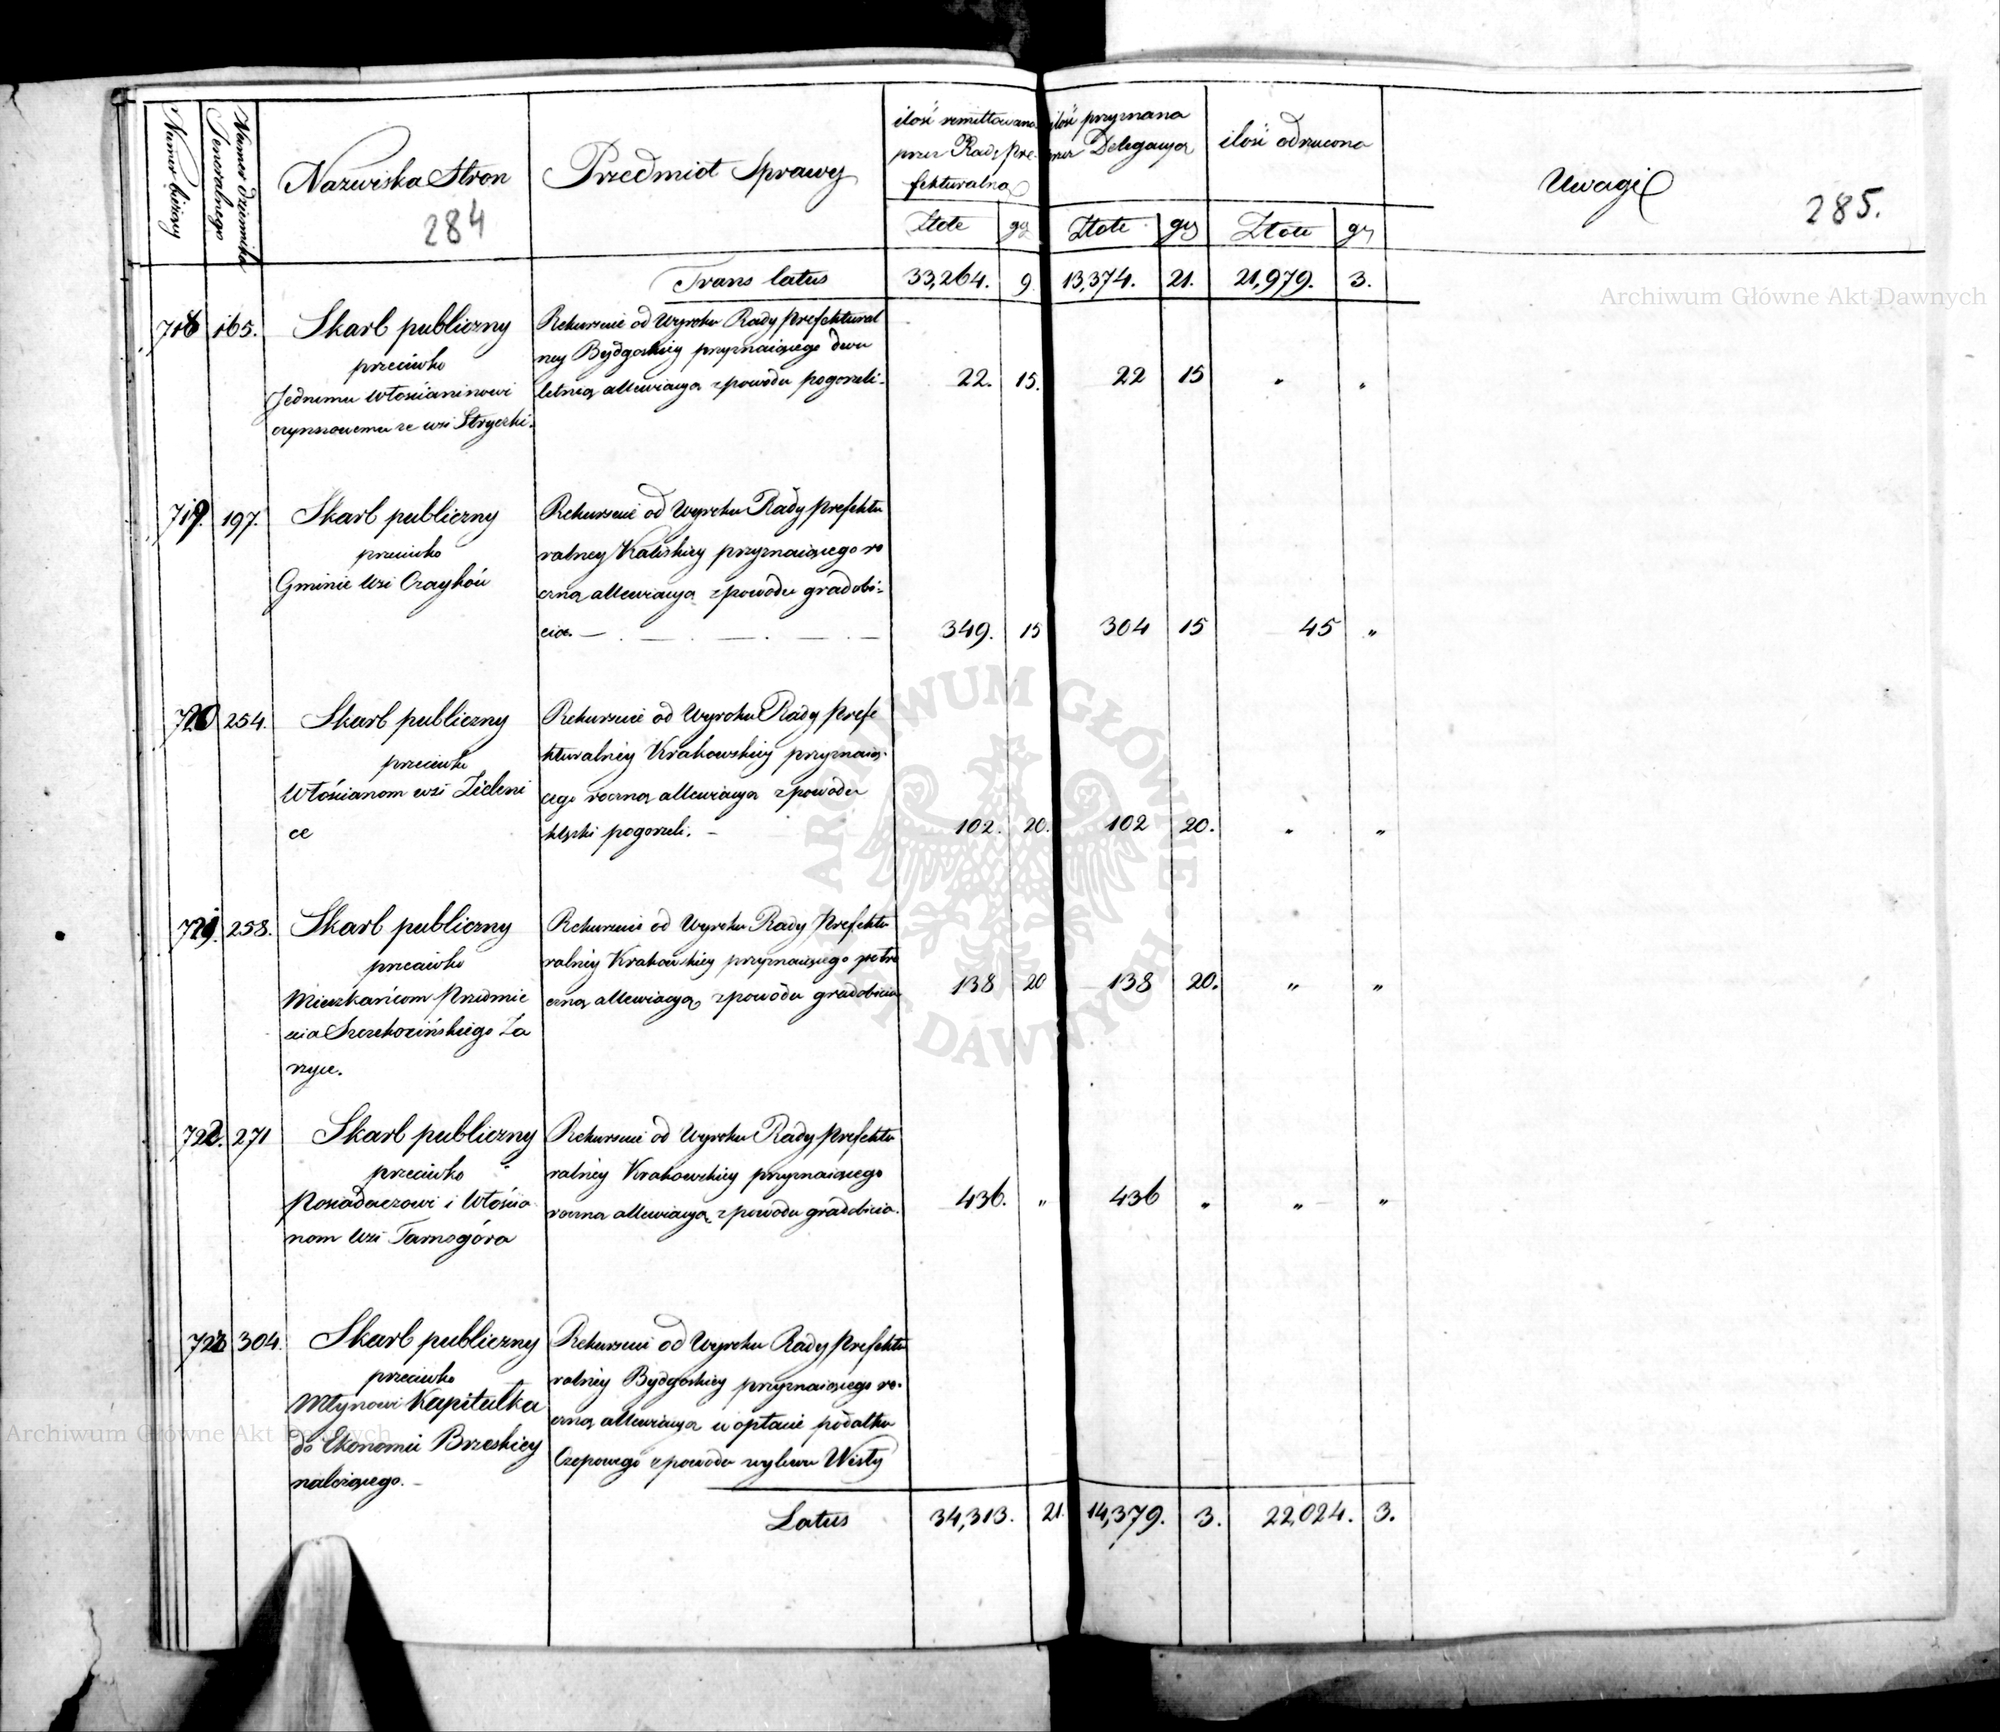 Numer bieżący
Numer dziennika
Jeneralnego
Nazwiska Stron
284
Przedmiot Sprawy
ilość remittowana
przez Radę Pre-
fekturalną
Złote gr
ilość przyznana
przez Delegacyą
Złote gr
ilość odrzucona
Złote gr
Uwagi
285.
Trans latus 33,264. 9 13,374. 21. 21,979. 3.
718 165. Skarb publiczny
przeciwko
Jednemu Włościaninowi
czynszowemu ze wsi Stryczki.
Rekursuie od Wyroku Rady Prefektural
ney Bydgoskiey przyznaiącego dwu
letnią allewiacyą z powodu pogorzeli.
22. 15. 22 15 " "
719. 197. Skarb publiczny
przeciwko
Gminie Wsi Czayków
Rekursuie od Wyroku Rady Prefektu
ralney Kaliskiey przyznaiącego ro
czną allewiacyą z powodu gradobi-
cia. — . — . — . — . —
349. 15 304 15 45 "
720 254. Skarb publiczny
przeciwko
Włościanom wsi Zieleni
ce
Rekursuie od Wyroku Rady Prefe
kturalnéy Krakowskiey przyznaią-
cego roczną allewiacyą z powodu
klęski pogorzeli. —
102. 20. 102 20. " "
721. 258. Skarb publiczny
przeciwko
Mieszkańcom Przedmie
ścia Szczekocińskiego Za
rzyce.
Rekursuie od Wyroku Rady Prefektu
ralnéy Krakowskiey przyznaiącego
czną allewiacyą z powodu gradobicia
138 20 138 20. " "
722. 271 Skarb publiczny
przeciwko
Posiadaczowi i Włościa
nom Wsi Tarnogóra
Rekursuie od Wyroku Rady Prefektu
ralnéy Krakowskiey przyznaiącego
roczną allewiacyą z powodu gradobicia.
436. " 436 " " "
723 304. Skarb publiczny
przeciwko
Młynowi Kapitułka
do Ekonomii Brzeskiey
należącego. —
Rekursuie od Wyroku Rady Prefektu
ralnéy Bydgoskiey przyznaiącego ro-
czną allewiacyą w opłacie podatku
Czopowego z powodu wylewu Wisły
Latus 34,313. 21. 14,379. 3. 22,024. 3.
Archiwum Główne Akt Dawnych
ARCHIWUM GŁÓWNE AKT DAWNYCH
Archiwum Główne Akt Dawnych